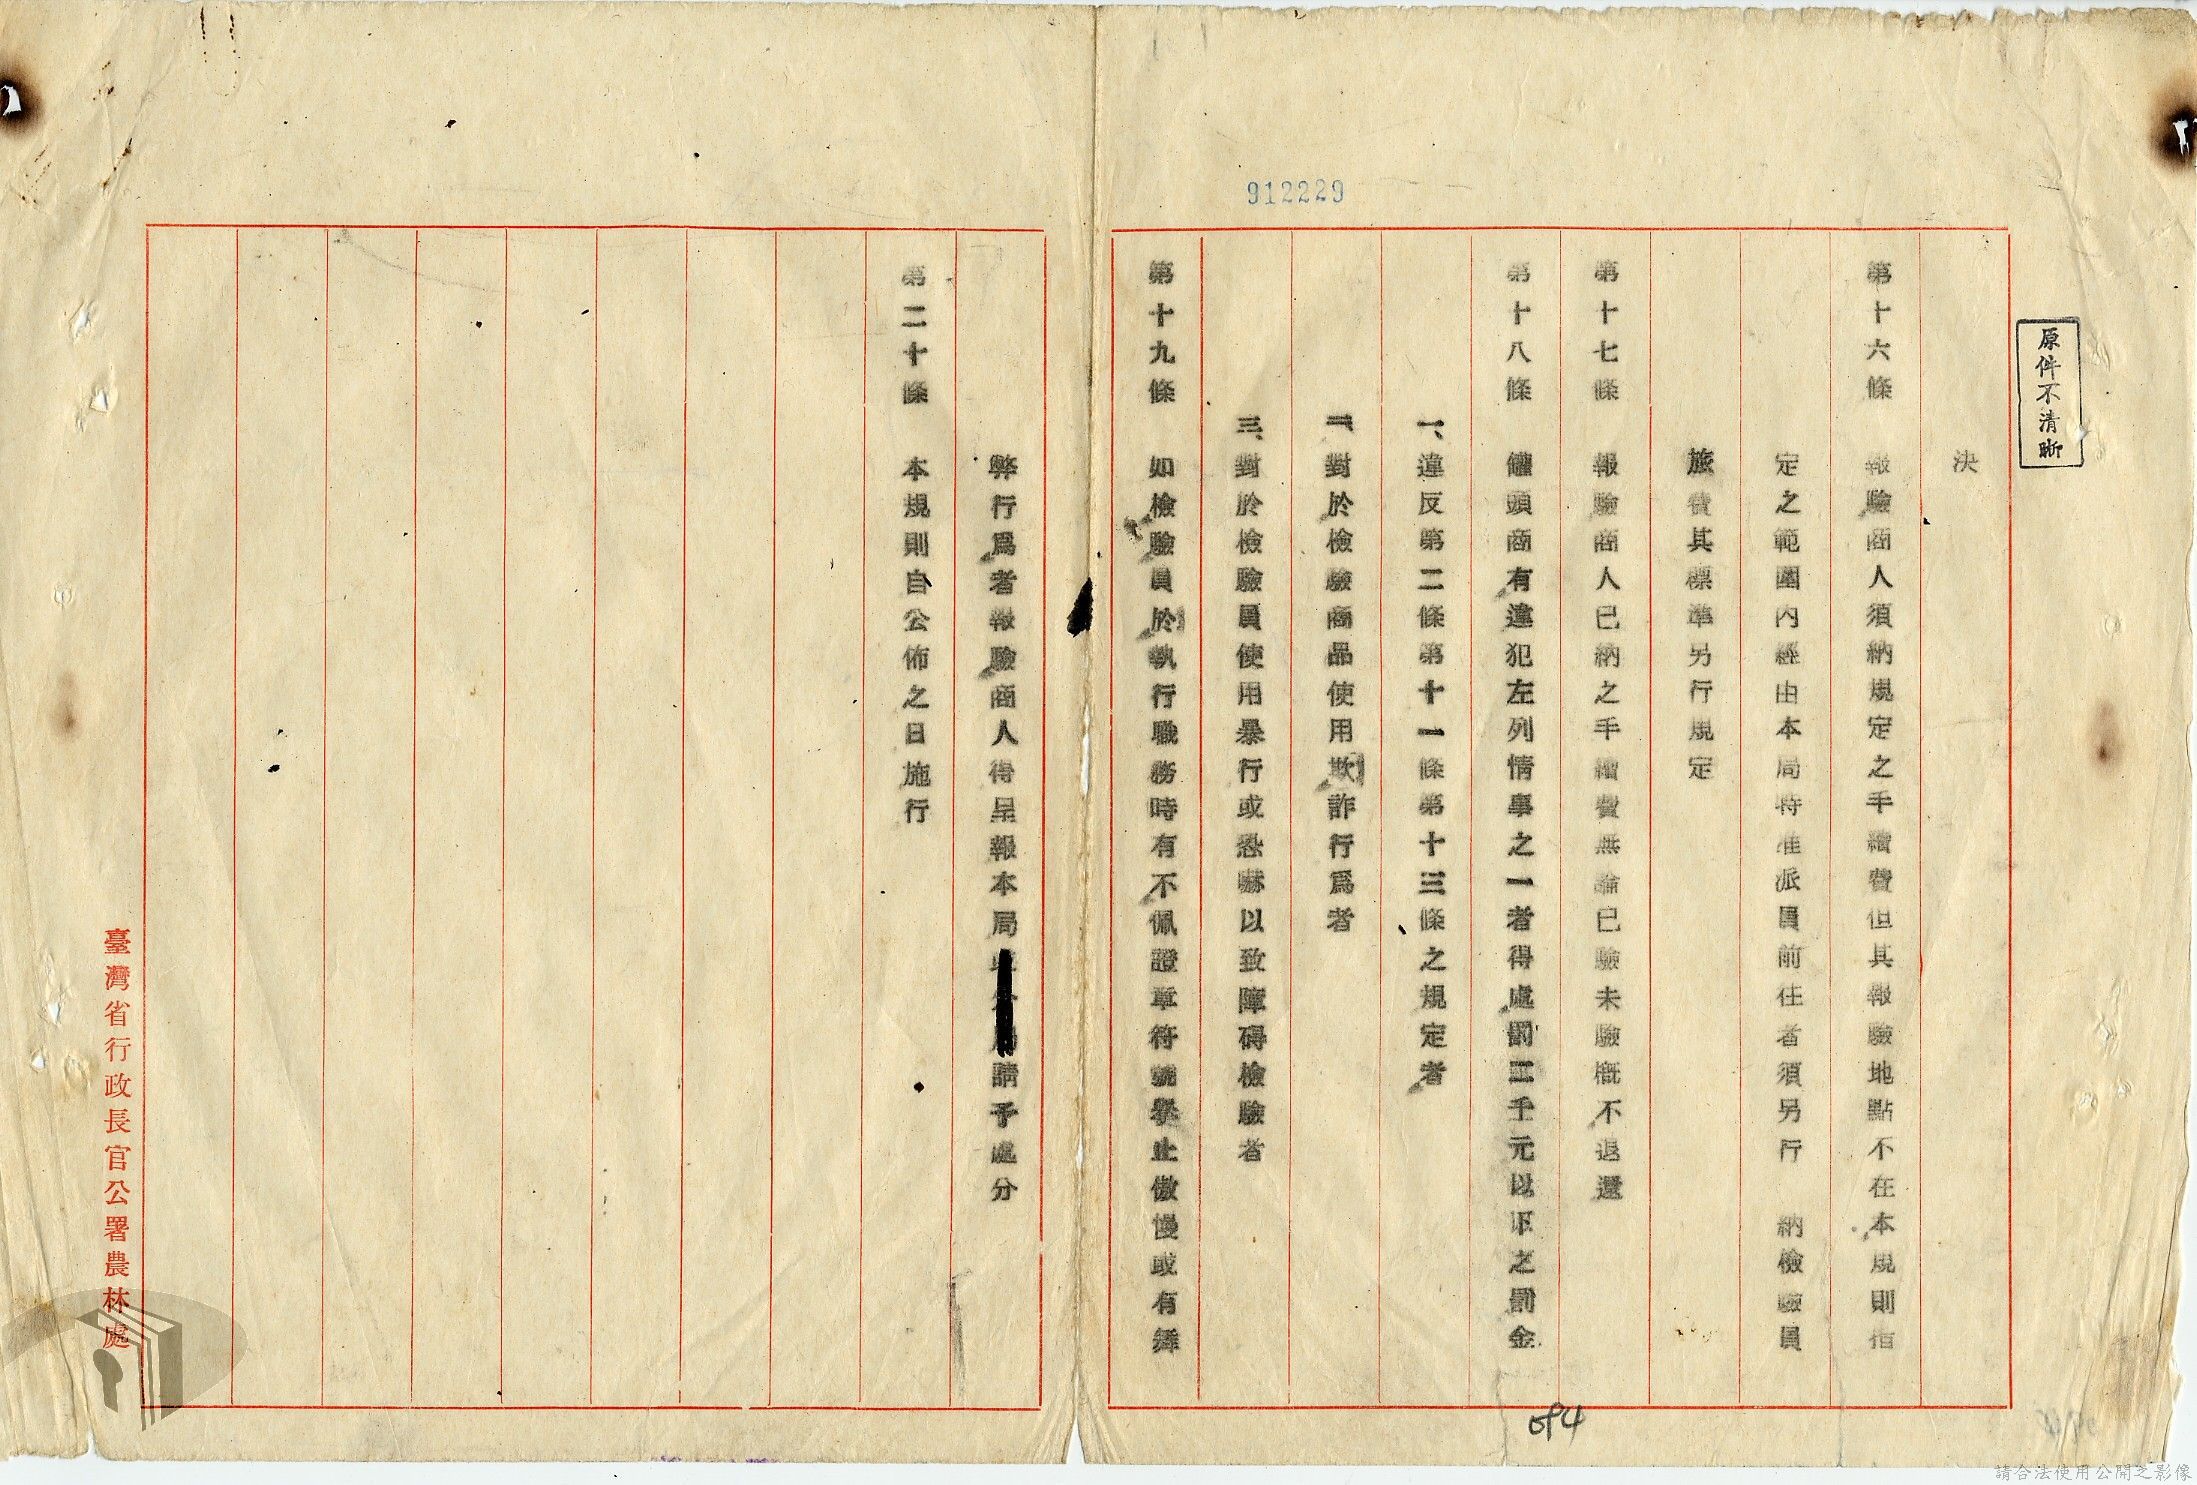 912229
原件不清晰
決
第十六條 報驗商人須納規定之手續費但其報驗地點不在本規則指
定之範圍內經由本局特准派員前往者須另行 納檢驗員
旅費其標準另行規定
第十七條 報驗商人已納之手續費無論已驗未驗概不退還
第十八條 罐頭商有違犯左列情事之一者得處罰二千元以下之罰金
一、違反第二條第十一條第十三條之規定者
二、對於檢驗商品使用欺詐行為者
三、對於檢驗員使用暴行或恐嚇以致障碍檢驗者
第十九條 如檢驗員於執行職務時有不佩證章符號舉止傲慢或有舞
弊行為者報驗商人得呈報本局請予處分
第二十條 本規則自公佈之日施行
臺灣省行政長官公署農林處
094
請合法使用公開之影像